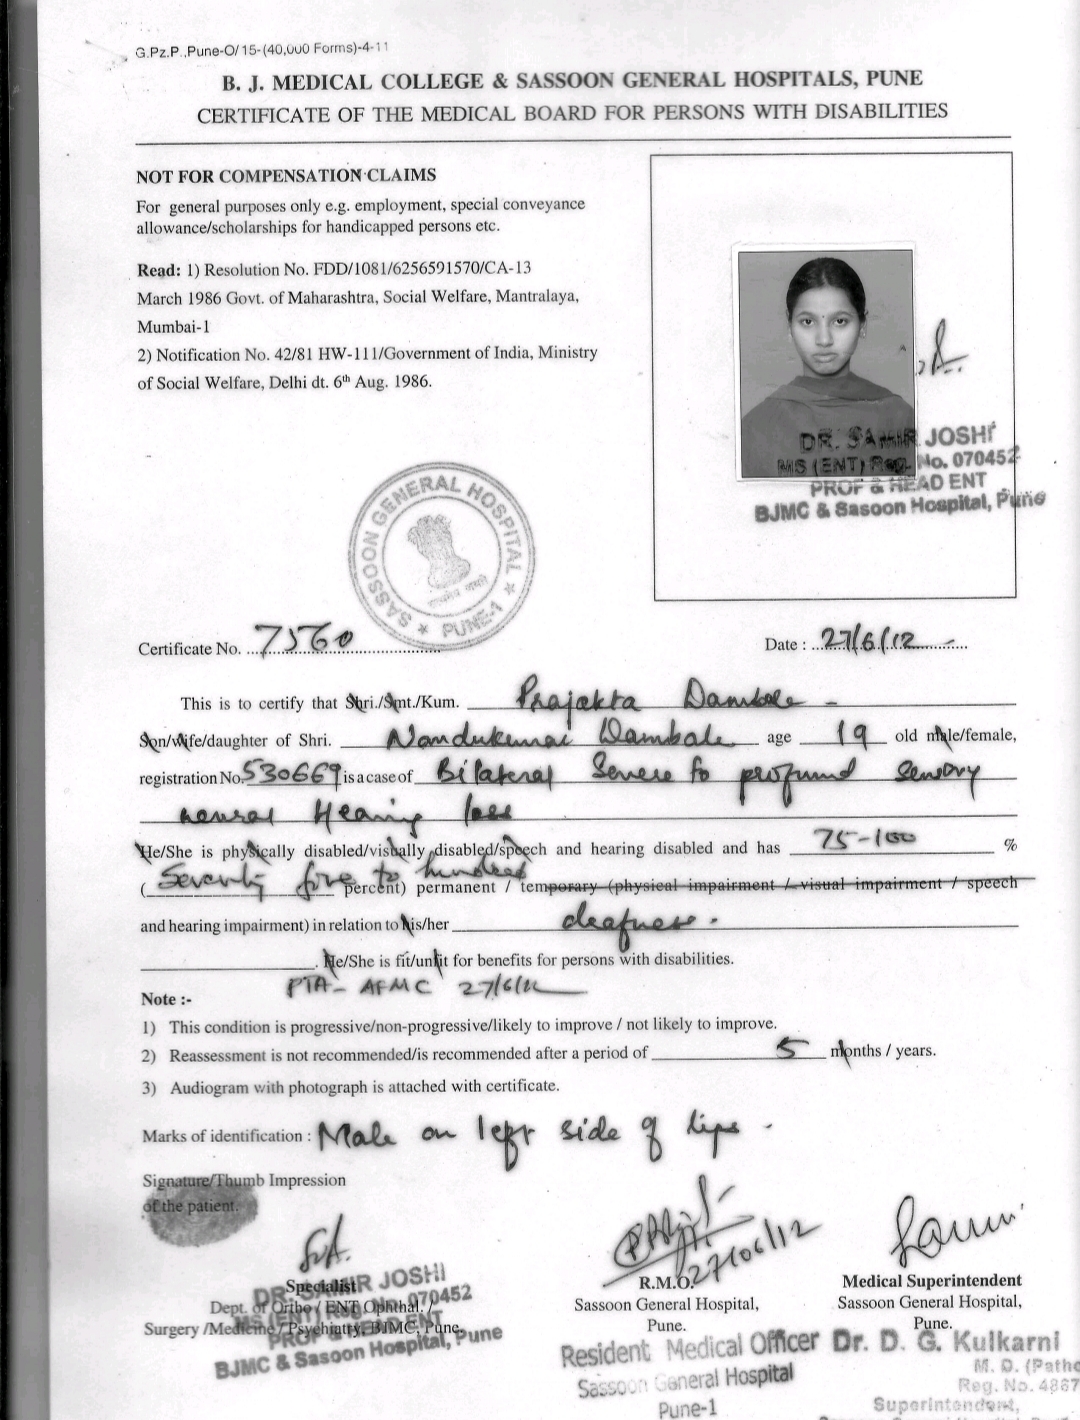 G.Pz.P.,Pune-O/15-(40,000 Forms)-4-11
B. J. MEDICAL COLLEGE & SASSOON GENERAL HOSPITALS, PUNE
CERTIFICATE OF THE MEDICAL BOARD FOR PERSONS WITH DISABILITIES
NOT FOR COMPENSATION CLAIMS
For general purposes only e.g. employment, special conveyance
allowance/scholarships for handicapped persons etc.
Read: 1) Resolution No. FDD/1081/6256591570/CA-13
March 1986 Govt. of Maharashtra, Social Welfare, Mantralaya,
Mumbai-1
2) Notification No. 42/81 HW-111/Government of India, Ministry
of Social Welfare, Delhi dt. 6th Aug. 1986.
DR. SAMIR JOSHI
MS (ENT) Reg. No. 070452
PROF & HEAD ENT
BJMC & Sasoon Hospital, Pune
SASSOON GENERAL HOSPITAL
★ PUNE-1 ★
सत्यमेव जयते
Certificate No. 7560
Date : 27/6/12
This is to certify that Shri./Smt./Kum. Prajakta Dambale -
Son/wife/daughter of Shri. Nandukumar Dambale age 19 old male/female,
registration No. 530669 is a case of Bilateral Severe to profund sensory
neural Hearing loss
He/She is physically disabled/visually disabled/speech and hearing disabled and has 75-100 %
(Seventy five to hundred percent) permanent / temporary (physical impairment / visual impairment / speech
and hearing impairment) in relation to his/her deafness.
. He/She is fit/unfit for benefits for persons with disabilities.
PTA - AFMC 27/6/12
Note :-
1) This condition is progressive/non-progressive/likely to improve / not likely to improve.
2) Reassessment is not recommended/is recommended after a period of 5 months / years.
3) Audiogram with photograph is attached with certificate.
Marks of identification : Male on left side of lips .
Signature/Thumb Impression
of the patient.
27/06/12
Specialist
Dept. of Ortho / ENT Ophthal. /
Surgery /Medicine / Psychiatry, BJMC, Pune.
DR. SAMIR JOSHI
MS (ENT) Reg. No. 070452
PROF & HEAD ENT
BJMC & Sasoon Hospital, Pune
R.M.O.
Sassoon General Hospital,
Pune.
Resident Medical Officer
Sassoon General Hospital
Pune-1
Medical Superintendent
Sassoon General Hospital,
Pune.
Dr. D. G. Kulkarni
M. D. (Patho
Reg. No. 4867
Superintendent,